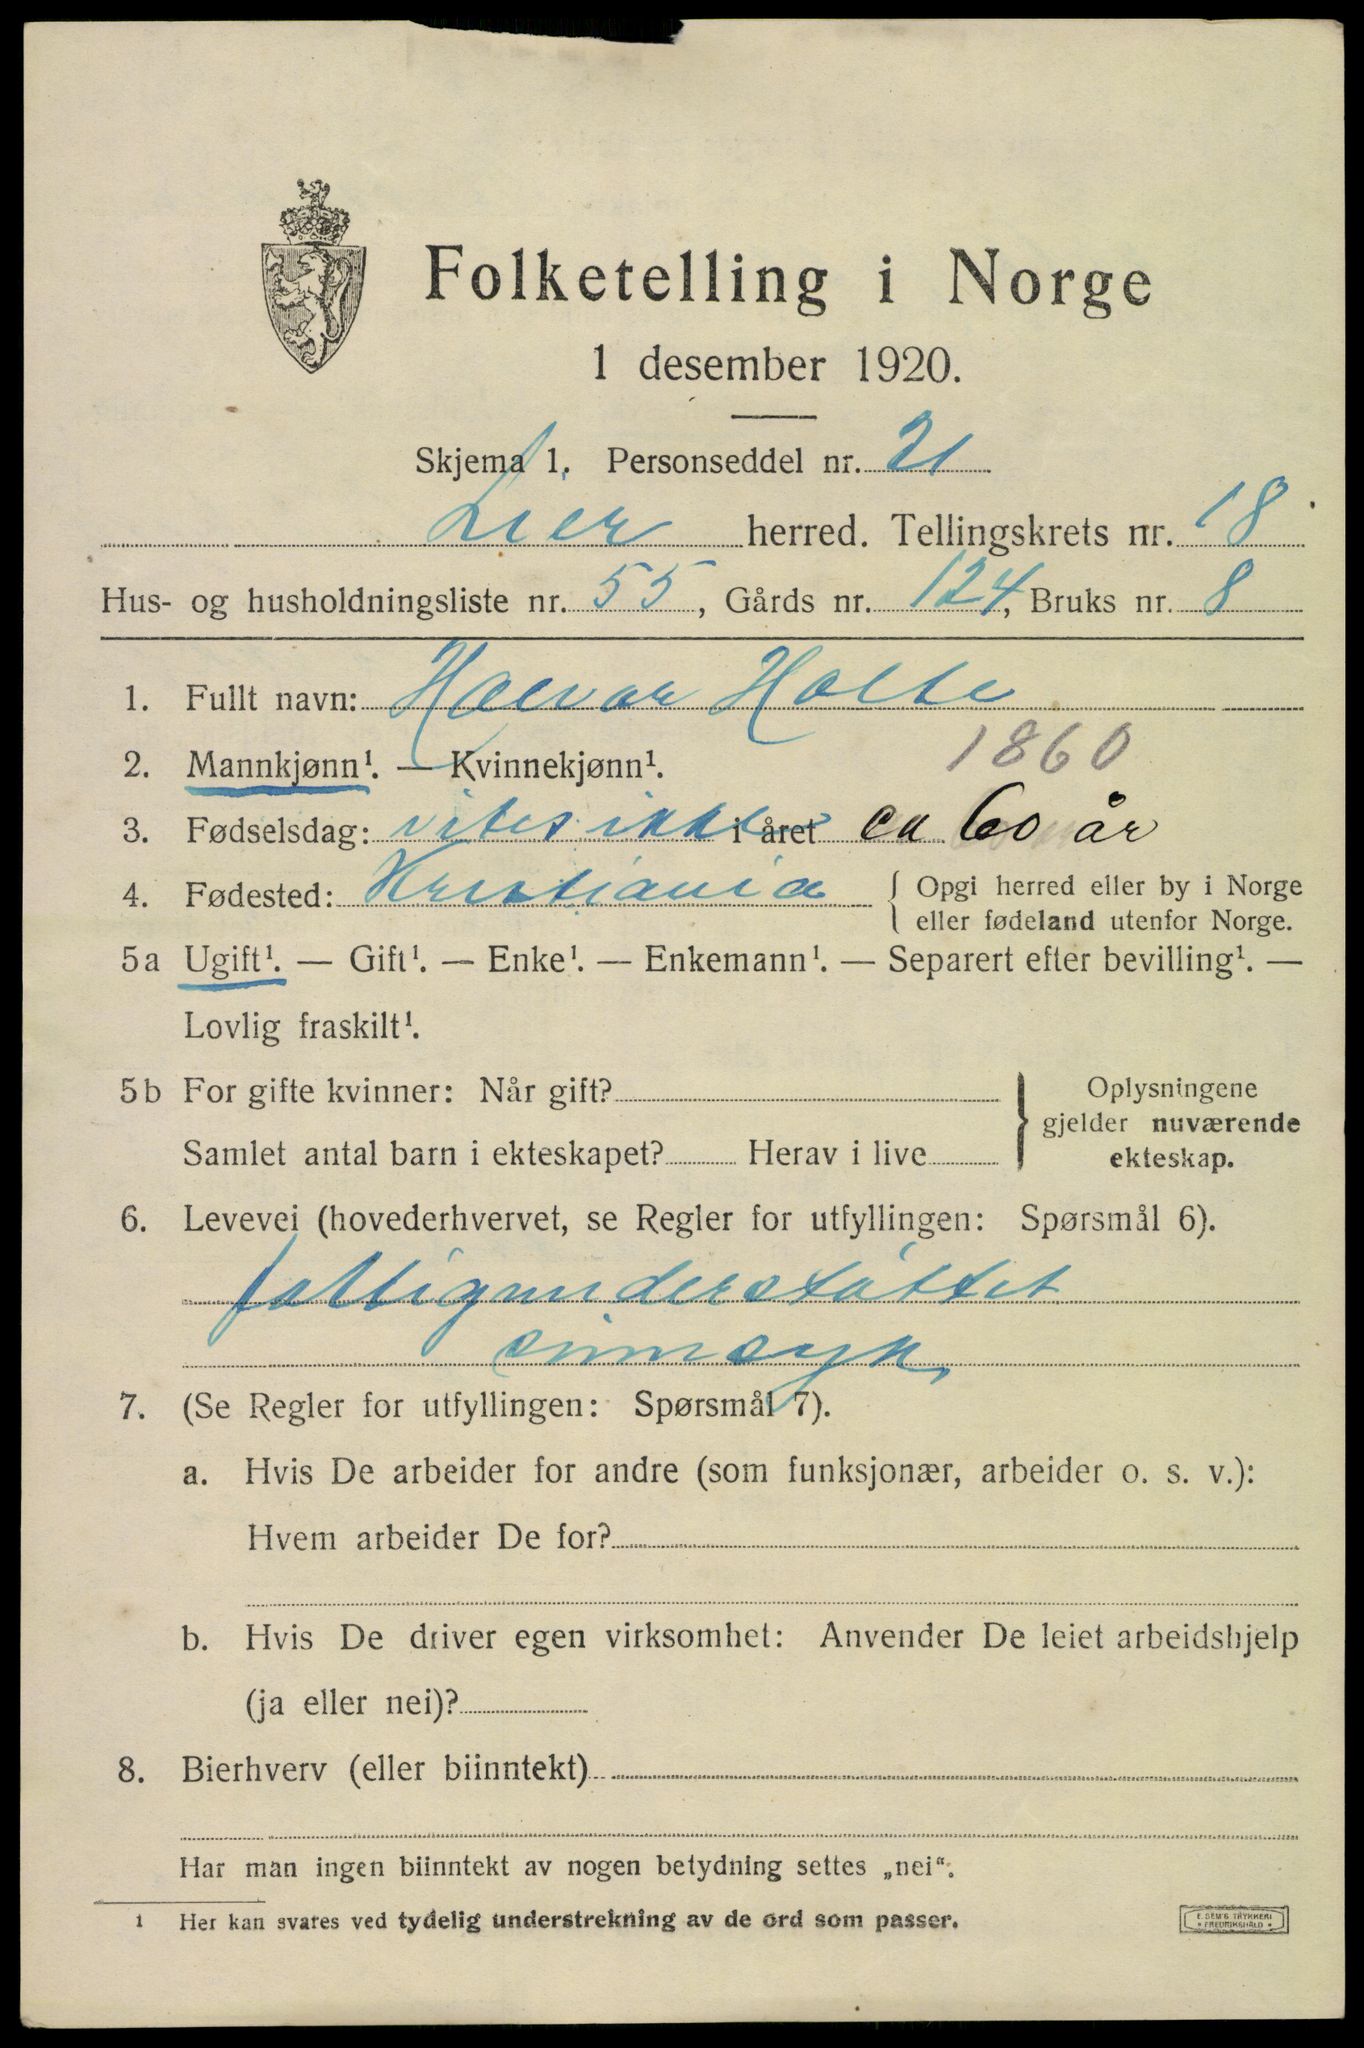 Folketelling i Norge
1 desember 1920.
Skjema 1. Personseddel nr. 21
Lier herred. Tellingskrets nr. 18
Hus- og husholdningsliste nr. 55, Gårds nr. 124, Bruks nr. 8
1. Fullt navn: Halvor Holte
2. Mannkjønn¹. — Kvinnekjønn¹. 1860
3. Fødselsdag: vites ikke i året ca 60 år
4. Fødested: Kristiania { Opgi herred eller by i Norge
eller fødeland utenfor Norge.
5a Ugift¹. — Gift¹. — Enke¹. — Enkemann¹. — Separert efter bevilling¹. —
Lovlig fraskilt¹.
5b For gifte kvinner: Når gift? } Oplysningene
gjelder nuværende
Samlet antal barn i ekteskapet? Herav i live ekteskap.
6. Levevei (hovederhvervet, se Regler for utfyllingen: Spørsmål 6).
fattigunderstøttet
sinnsyk
7. (Se Regler for utfyllingen: Spørsmål 7).
a. Hvis De arbeider for andre (som funksjonær, arbeider o. s. v.):
Hvem arbeider De for?
b. Hvis De driver egen virksomhet: Anvender De leiet arbeidshjelp
(ja eller nei)?
8. Bierhverv (eller biinntekt)
Har man ingen biinntekt av nogen betydning settes „nei“.
¹ Her kan svares ved tydelig understrekning av de ord som passer.
E. SEM'S TRYKKERI
• FREDRIKSHALD •